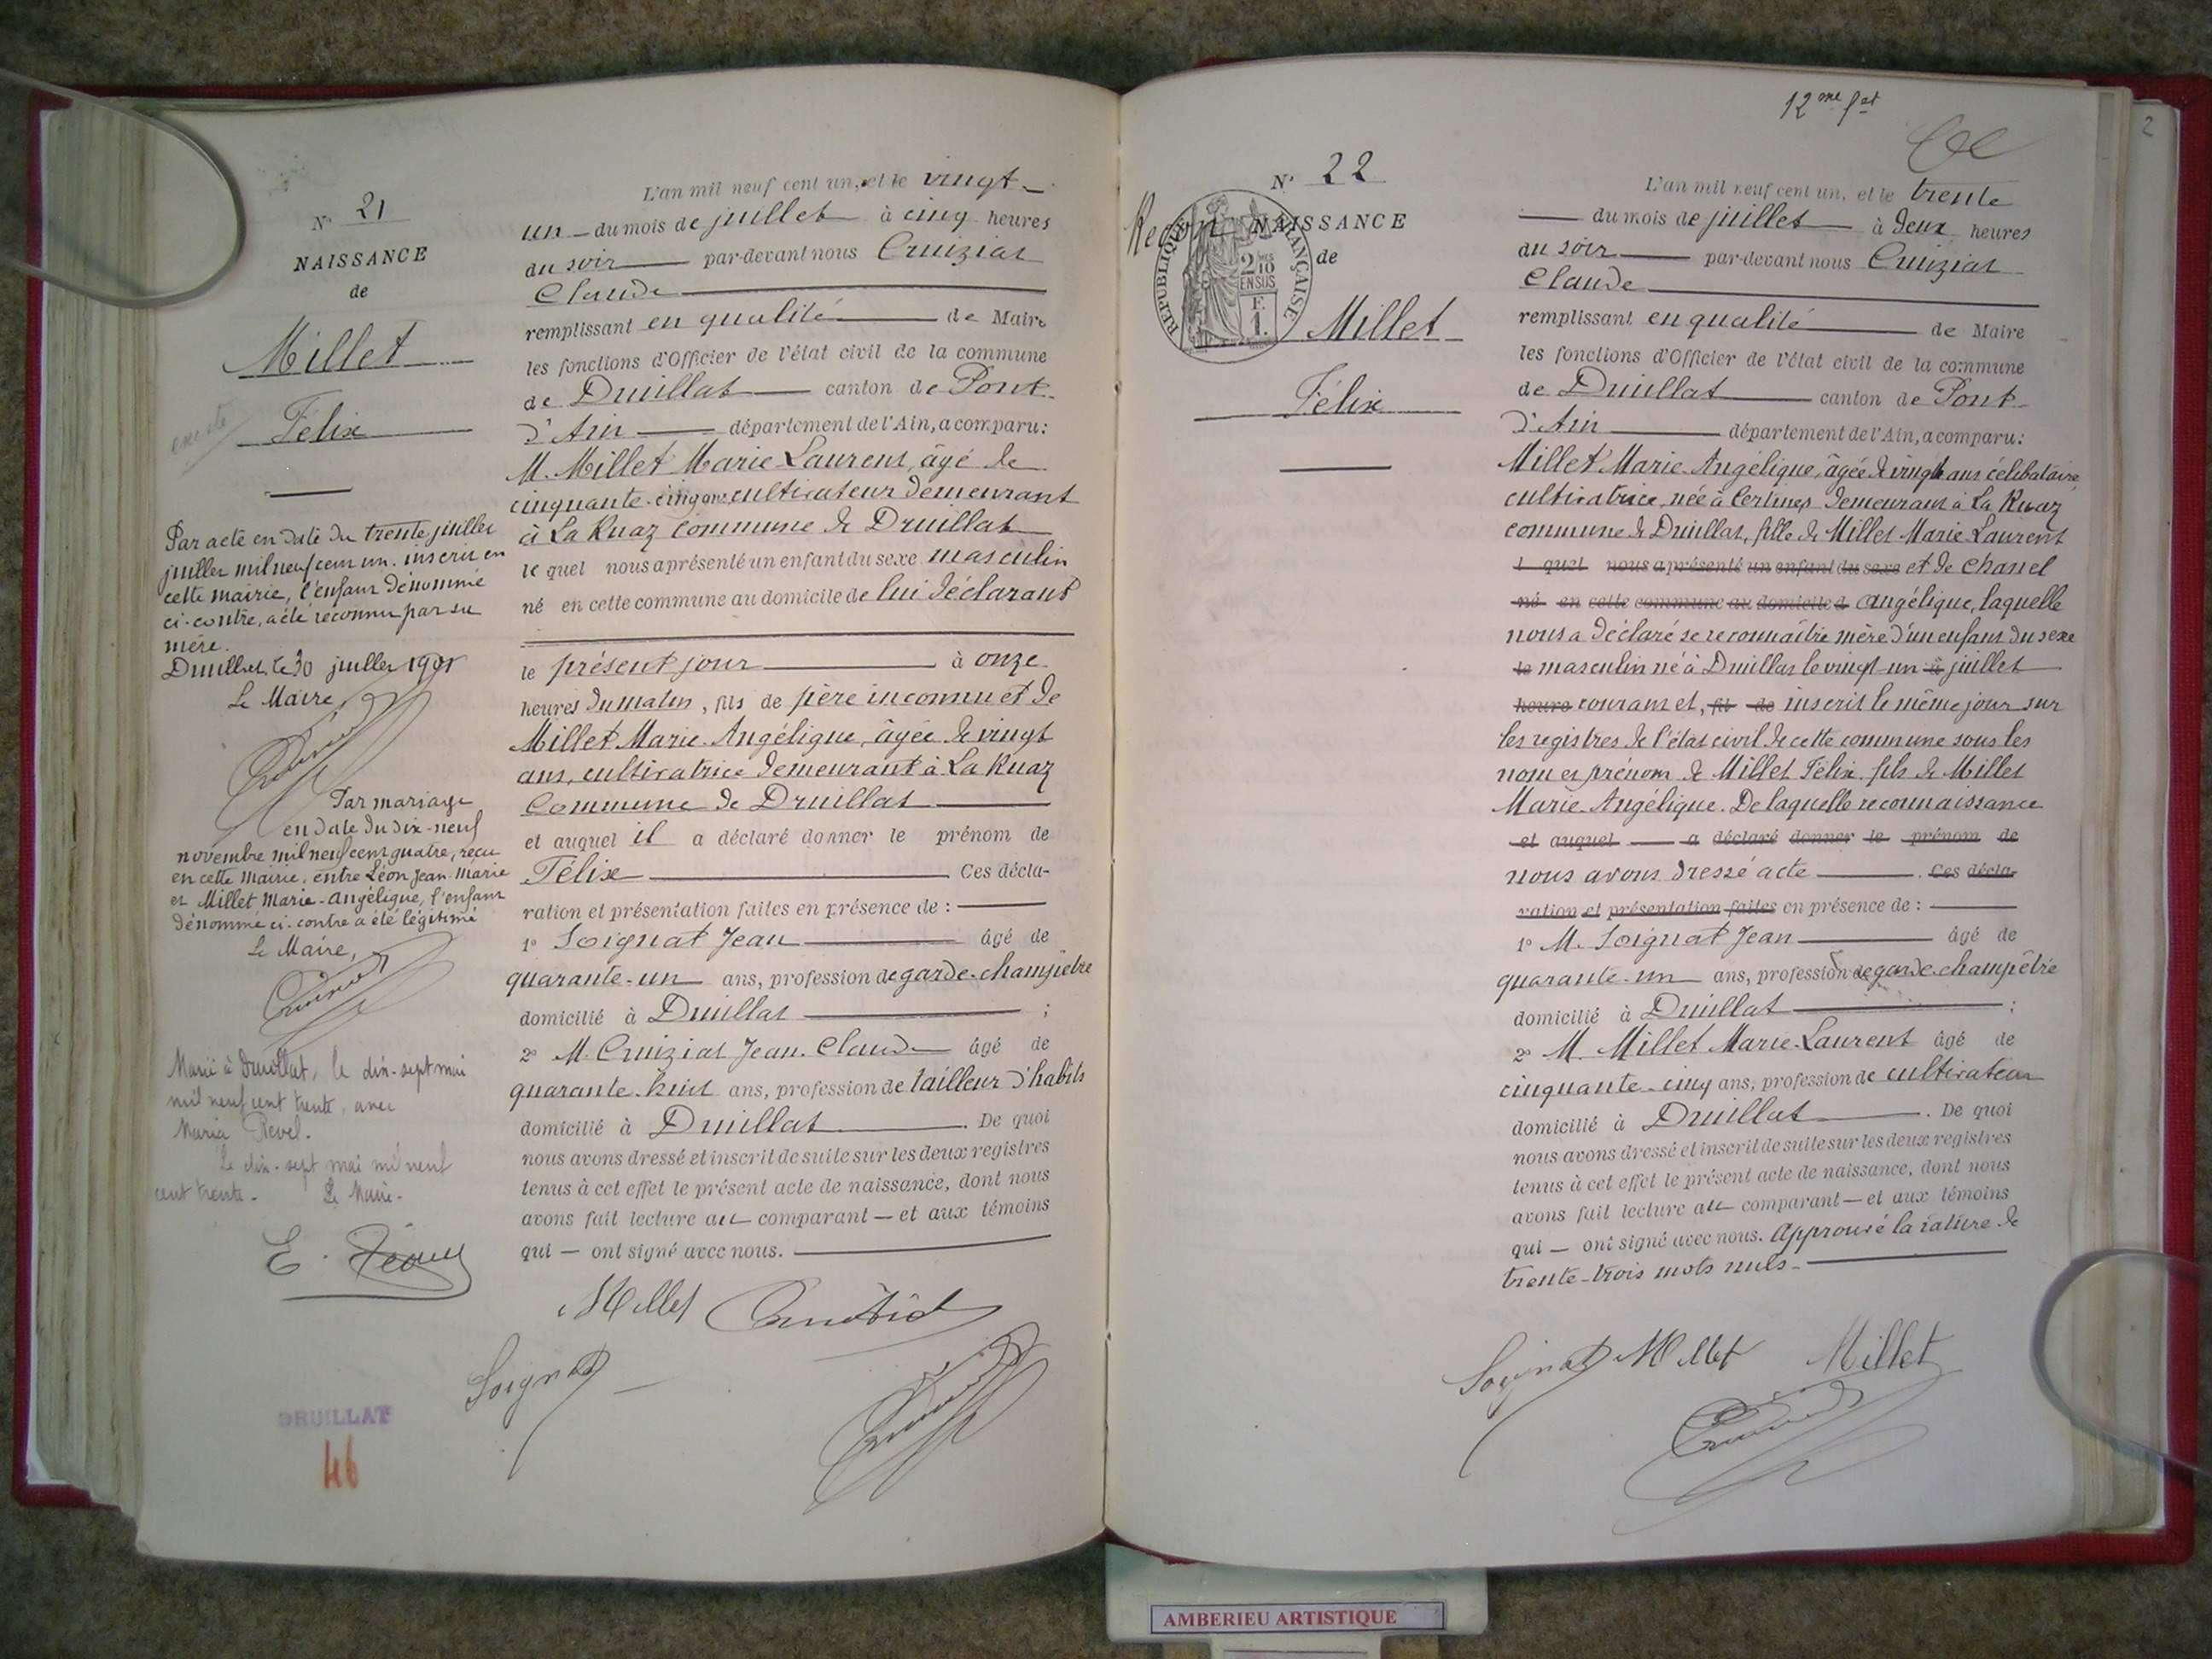 N° 21
NAISSANCE
de
Millet
Félix
Par acte en date du trente juillet
juillet mil neuf cent un, inscrit en
cette mairie, l'enfant dénommé
ci-contre, a été reconnu par sa
mère.
Druillat, le 30 juillet 1901
Le Maire,
Par mariage
en date du dix-neuf
novembre mil neuf cent quatre, reçu
en cette Mairie, entre Léon Jean-Marie
et Millet Marie-Angélique, l'enfant
dénommé ci-contre a été légitimé
Le Maire,
Marié à Druillat, le dix-sept mai
mil neuf cent trente, avec
Maria Revel.
Le dix-sept mai mil neuf
cent trente - Le Maire -
DRUILLAT
46
L'an mil neuf cent un, et le vingt-
un - du mois de juillet à cinq heures
du soir par-devant nous Cruiziat
Claude
remplissant en qualité de Maire
les fonctions d'Officier de l'état civil de la commune
de Druillat canton de Pont-
d'Ain département de l'Ain, a comparu:
M. Millet Marie-Laurent, âgé de
cinquante-cinq ans cultivateur demeurant
à La Ruaz commune de Druillat
le quel nous a présenté un enfant du sexe masculin
né en cette commune au domicile de lui déclarant
le présent jour à onze
heures du matin, fils de père inconnu et de
Millet Marie-Angélique, âgée de vingt
ans, cultivatrice demeurant à La Ruaz
Commune de Druillat
et auquel il a déclaré donner le prénom de
Félix Ces décla-
ration et présentation faites en présence de :
1° Soignat Jean âgé de
quarante-un ans, profession de garde-champêtre
domicilié à Druillat ;
2° M. Cruiziat Jean-Claude âgé de
quarante-huit ans, profession de tailleur d'habits
domicilié à Druillat . De quoi
nous avons dressé et inscrit de suite sur les deux registres
tenus à cet effet le présent acte de naissance, dont nous
avons fait lecture au comparant — et aux témoins
qui — ont signé avec nous.
Millet Cruiziat
Soignat
12me f et
2
N° 22
NAISSANCE
de
REPUBLIQUE FRANÇAISE
2/10 EN SUS
F.
1.
Millet
Félix
L'an mil neuf cent un, et le trente
du mois de juillet à deux heures
du soir par-devant nous Cruiziat
Claude
remplissant en qualité de Maire
les fonctions d'Officier de l'état civil de la commune
de Druillat canton de Pont-
d'Ain département de l'Ain, a comparu:
Millet Marie-Angélique, âgée de vingt ans célibataire
cultivatrice, née à Certines demeurant à La Ruaz
commune de Druillat, fille de Millet Marie Laurent
l quel nous a présenté un enfant du sexe et de Chanel
né en cette commune au domicile d Angélique, laquelle
nous a déclaré se reconnaître mère d'un enfant du sexe
le masculin né à Druillat le vingt un à juillet
heure courant et, fil de inscrit le même jour sur
les registres de l'état civil de cette commune sous les
nom et prénom de Millet Félix, fils de Millet
Marie-Angélique. De laquelle reconnaissance
et auquel a déclaré donner le prénom de
nous avons dressé acte . Ces décla-
ration et présentation faites en présence de :
1° M. Soignat Jean âgé de
quarante-un ans, profession de garde-champêtre
domicilié à Druillat ;
2° M. Millet Marie-Laurent âgé de
cinquante-cinq ans, profession de cultivateur
domicilié à Druillat . De quoi
nous avons dressé et inscrit de suite sur les deux registres
tenus à cet effet le présent acte de naissance, dont nous
avons fait lecture au comparant — et aux témoins
qui — ont signé avec nous. Approuvé la rature de
trente-trois mots nuls -
Soignat Millet Millet
AMBERIEU ARTISTIQUE